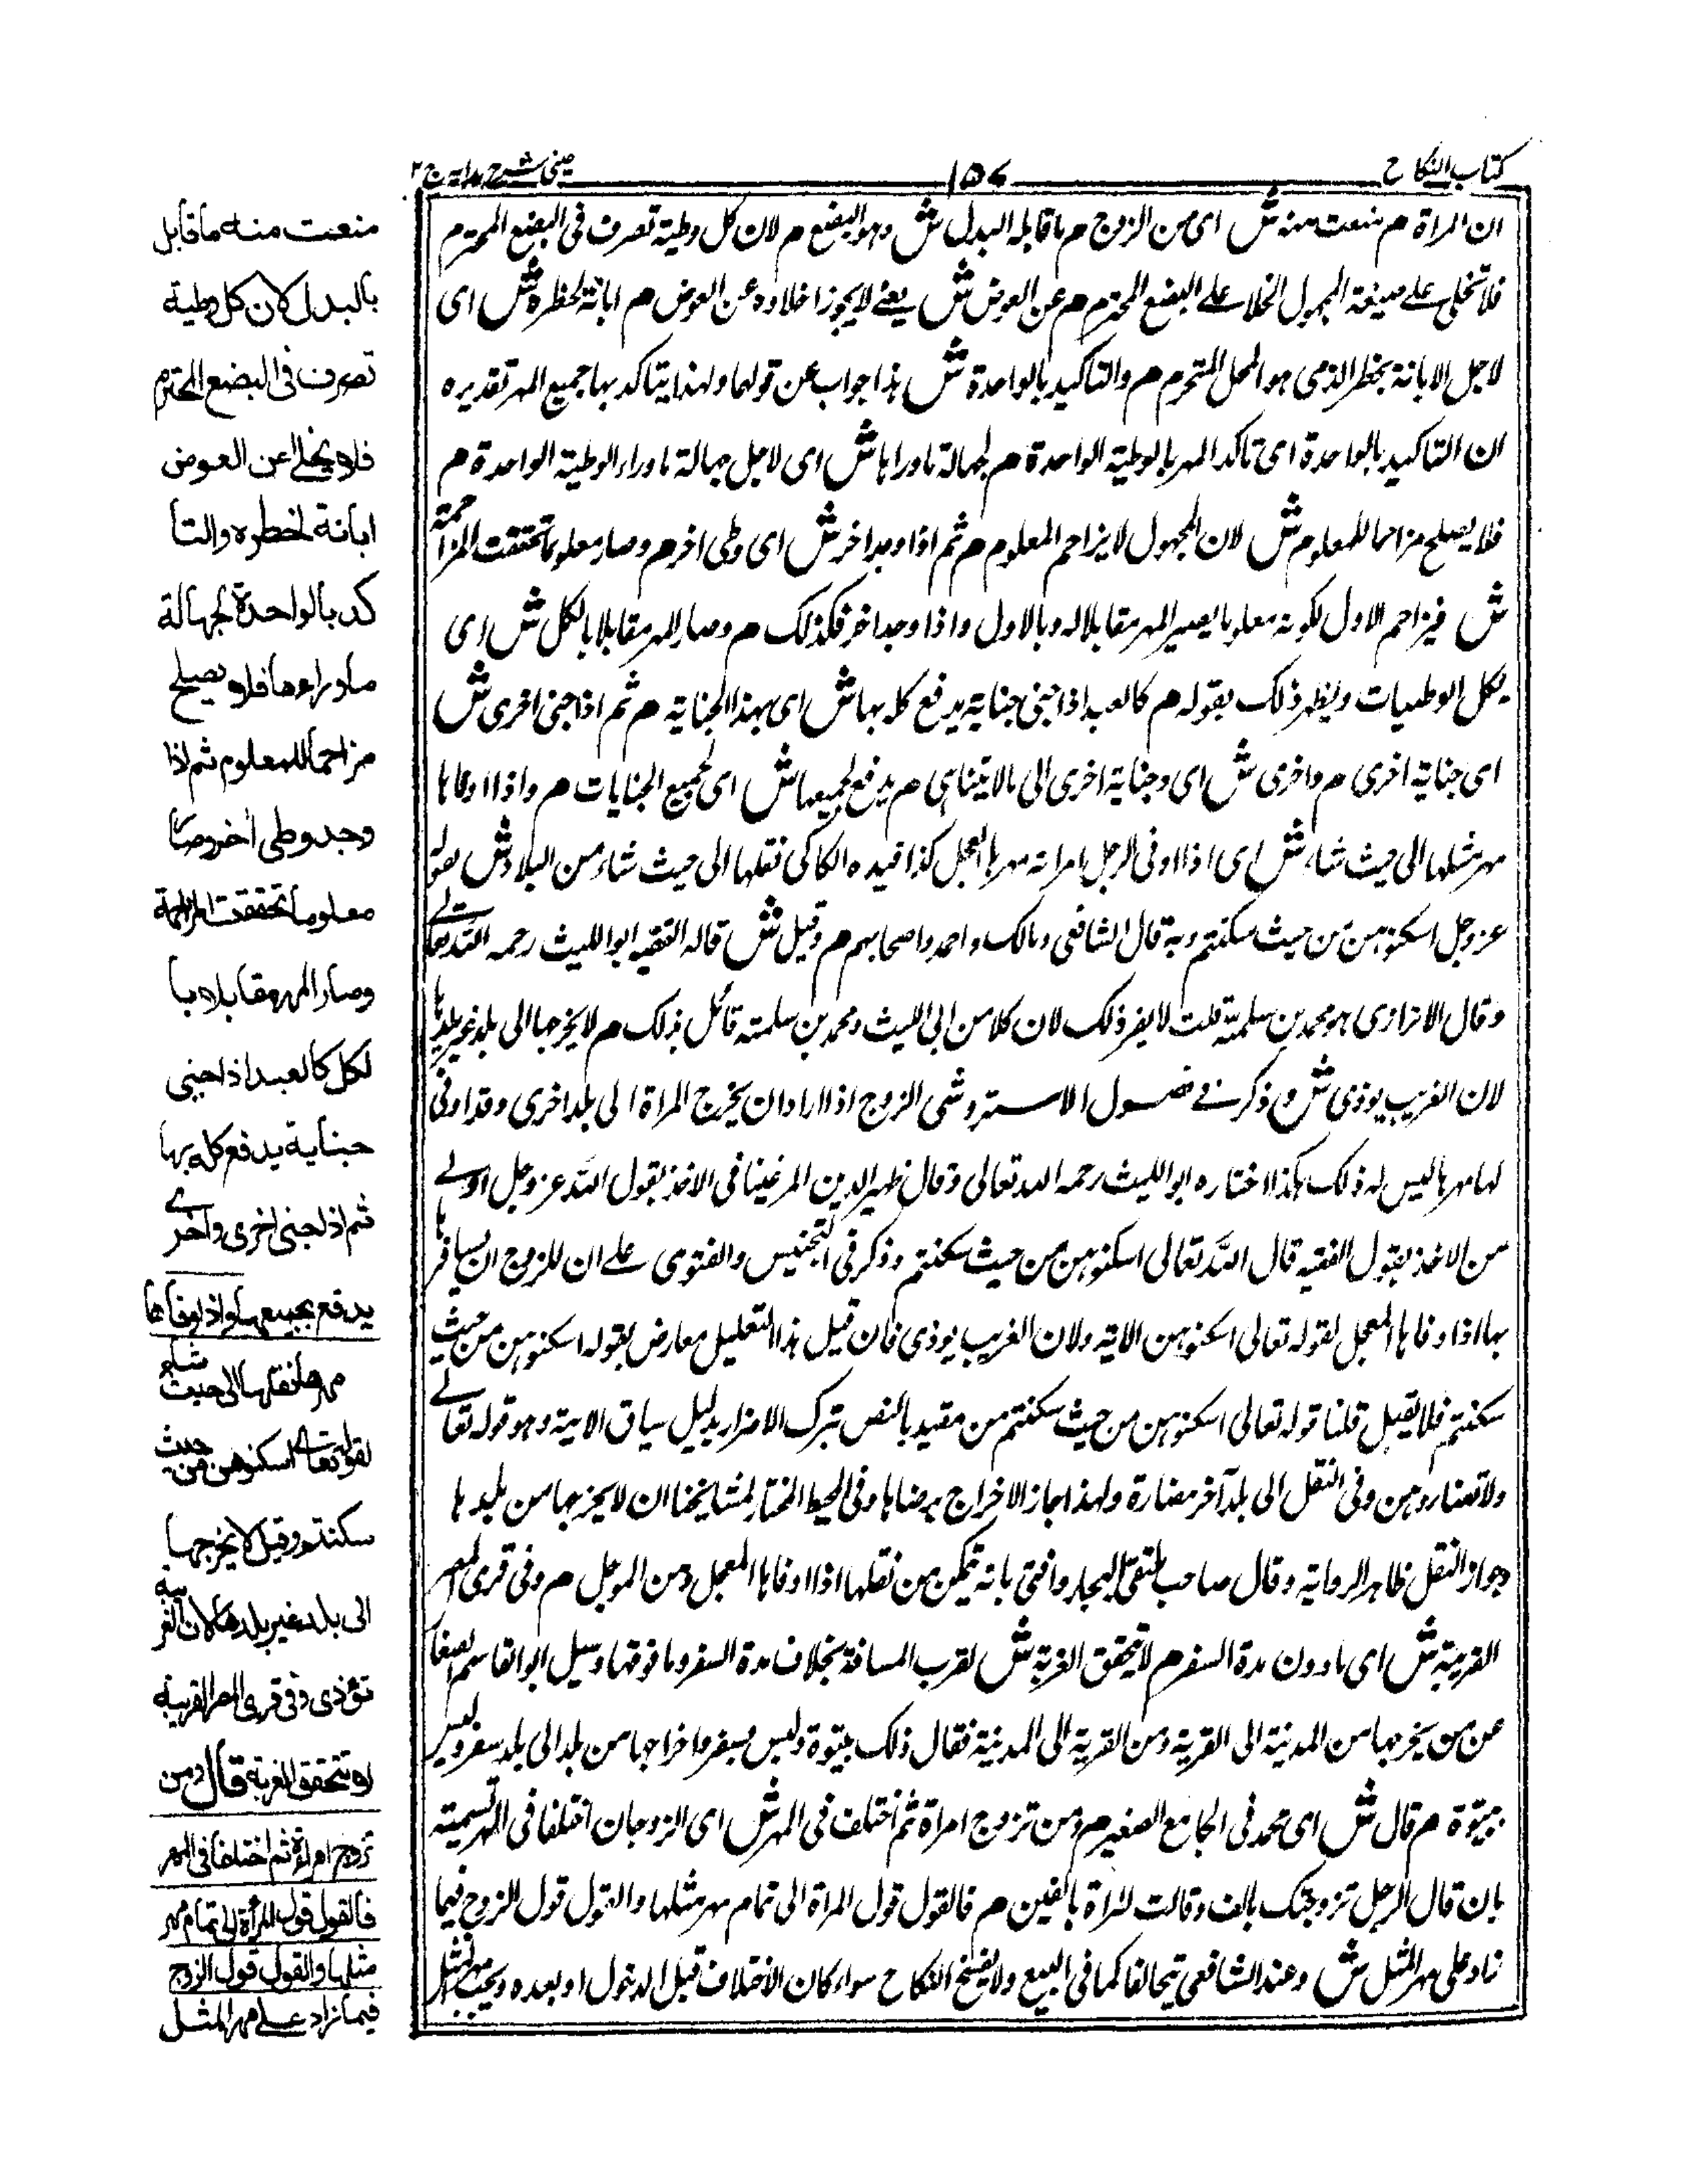 كتاب النكاح
١٥٧
عينى شرح هدايه ج ٢
ان المراة م منعت منه ش اى من الزوج م ما قابله البدل ش وهو البضع م لان كل وطية تصرف فى البضع المحترم م
فلا تخلى على صيغة المجهول اخلاء على البضع المحترم م عن العوض ش يعنى لا يجوز اخلاوه عن العوض م ابانة لخطره ش اى
لاجل الابانة بخطر الذى هو المحل المتحرم م والتاكيد بالواحدة ش هذا جواب عن قولهما ولهذا يتاكد بها جميع المهر تقديره
ان التاكيد بالواحدة اى تاكد المهر بالوطية الواحدة م لجهالة ما وراها ش اى لاجل جهالة ما وراء الوطية الواحدة م
فلا يصلح مزاحما للمعلوم ش لان المجهول لا يزاحم المعلوم م ثم اذا وجد اخر ش اى وطى اخر م وصار معلوما تحققت المزاحمة
ش فيزاحم الاول لكونه معلوما يصير المهر مقابلا له وبالاول واذا وجد اخر فكذلك م وصار المهر مقابلا بالكل ش اى
بكل الوطيات ونظر ذلك بقوله م كالعبد اذا جنى جناية يدفع كله بها ش اى بهذا الجناية م ثم اذا جنى اخرى ش
اى جناية اخرى م واخرى ش اى وجناية اخرى الى مالا يتناهى م يدفع بجميعها ش اى لجميع الجنايات م واذا اوفاها
مهر مثلها الى حيث شاء ش اى اذا اوفى الرجل امراته مهرها المعجل كذا قيده الكاكى نقلها الى حيث شاء من البلاد ش لقوله
عز وجل اسكنوهن من حيث سكنتم وبه قال الشافعى ومالك واحمد واصحابهم م وقيل ش قاله الفقيه ابو الليث رحمه الله تعالے
وقال الاترازى هو محمد بن سلمة قلت لا يضر ذلك لان كلا من ابى الليث ومحمد بن سلمته قائل بذلك م لا يخرجها الى بلد غير بلدها
لان الغريب يوذى ش وذكر فے فصول الاستروشنى الزوج اذا اراد ان يخرج المراة الى بلد اخرى وقد اوفى
لها مهرها ليس له ذلك هكذا اختاره ابو الليث رحمه الله تعالى وقال ظهير الدين المرغينانى الاخذ بقول الله عز وجل اولے
من الاخذ بقول الفقيه قال الله تعالى اسكنوهن من حيث سكنتم وذكر فى التجنيس والفتوى على ان للزوج ان يسافر
بها اذا وفاها المعجل لقوله تعالى اسكنوهن الاية ولان الغريب يوذى فان قيل هذا التعليل معارض بقوله اسكنوهن من حيث
سكنتم فلا يقبل قلنا قوله تعالى اسكنوهن من حيث سكنتم من مقيد بالنص بترك الاضرار بدليل سياق الاية وهو قوله تعالے
ولا تضاروهن وفى النقل الى بلد آخر مضارة ولهذا جاز الاخراج برضاها وفى المحيط المختار لمشايخنا ان لا يخرجها من بلدها
وجواز النقل ظاهر الرواية وقال صاحب ملتقى البحار وافتى بانه يتمكن من نقلها اذا اوفاها المعجل ومن الموجل م وفى قرى المصر
القريبة ش اى مادون مدة السفر م لا تتحقق الغربة ش لقرب المسافة بخلاف مدة السفر وما فوقها وسئل ابو القاسم الصفار
عن من يخرجها من المدينة الى القرية ومن القرية الى المدينة فقال ذلك تبوة وليس بسفر واخراجها من بلد الى بلد سفر وليس
بتبوة م قال ش اى محمد فى الجامع الصغير م ومن تزوج امراة ثم اختلف فى المهر ش اى الزوجان اختلفا فى المهر تسمية
بان قال الرجل تزوجتك بالف وقالت المراة بالفين م فالقول قول المراة الى تمام مهر مثلها والقول قول الزوج فيما
زاد على مهر المثل ش وعند الشافعى تحالفا كما فى البيع ولا يفسخ النكاح سواء كان الاختلاف قبل الدخول او بعده ويجب مهر المثل
منعت منه ما قابل
بالبدل لان كل وطية
تصرف فى البضع المحترم
فلا يخلے عن العوض
ابانة لخطره والتا
كد بالواحدة لجهالة
ما وراءها فلا يصلح
مزاحما للمعلوم ثم اذا
وجد وطى اخر وصا
معلوما تحققت المزاحمة
وصار المهر مقابلا با
لكل كالعبد اذا جنى
جناية يدفع كله بها
ثم اذا جنى اخرى واخرے
يدفع بجميعها واذا وفاها
مهرها نقلها الى حيث شاء
لقوله تعالے اسكنوهن من حيث
سكنتم وقيل لا يخرجها
الى بلد غير بلدها لان الغريبة
تؤذى وفى قرى المصر القريبة
لا تتحقق الغربة قال ومن
تزوج امراة ثم اختلفا فى المهر
فالقول قول المرأة الى تمام مهر
مثلها والقول قول الزوج
فيما زاد علے مهر المثل